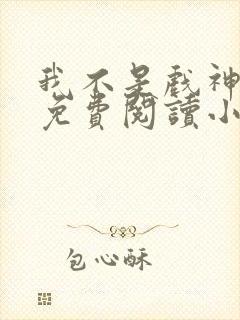 我不是戲神
免費閱讀小
包心酥